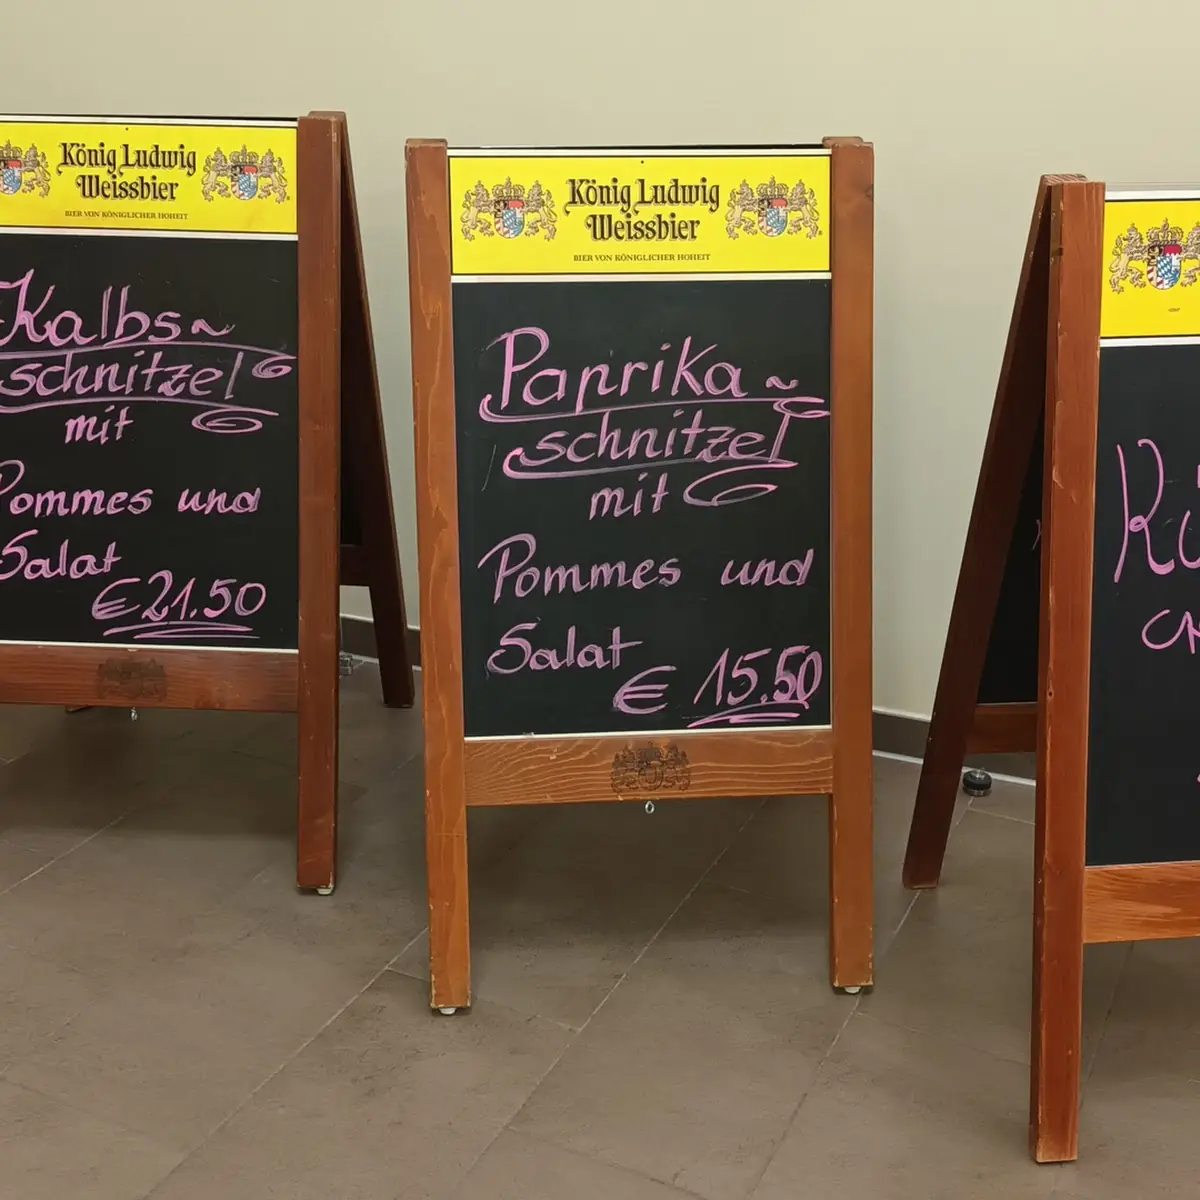 König Ludwig
Weissbier
BIER VON KÖNIGLICHER HOHEIT
Kalbs~
schnitzel
mit
Pommes und
Salat
€ 21.50
König Ludwig
Weissbier
BIER VON KÖNIGLICHER HOHEIT
Paprika~
schnitzel
mit
Pommes und
Salat
€ 15.50